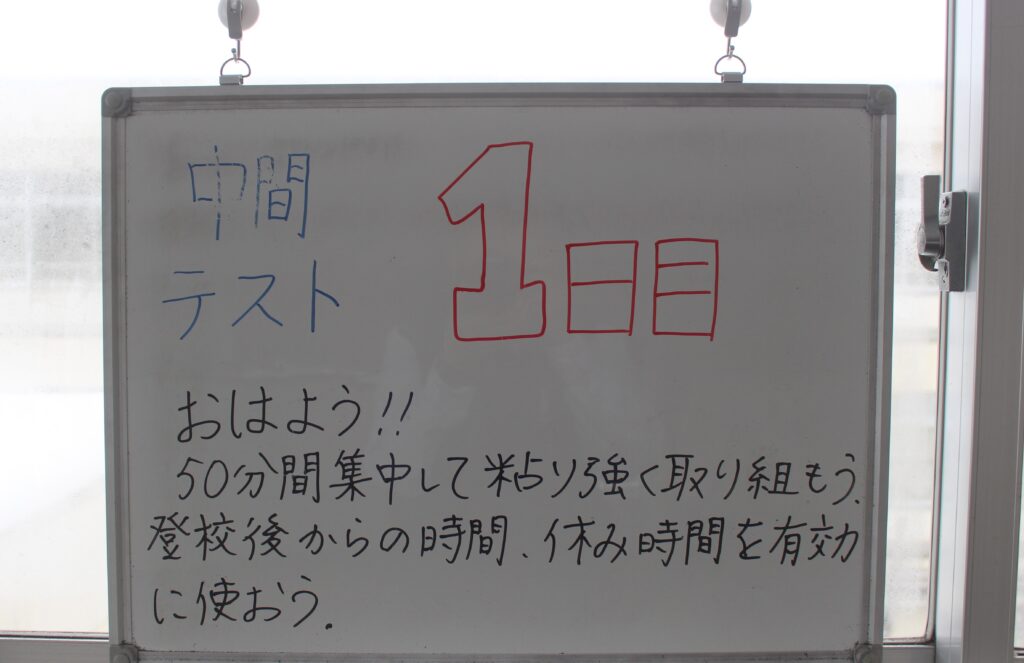 中間
テスト
1日目
おはよう!!
50分間集中して粘り強く取り組もう.
登校後からの時間、休み時間を有効
に使おう.